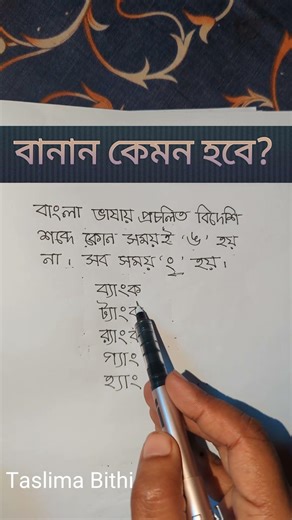 বানান কেমন হবে?
বাংলা ভাষায় প্রচলিত বিদেশি
শব্দে কোন সময়ই 'ঙ' হয়
না। সব সময় 'ং' হয়।
ব্যাংক
ট্যাংক
র‍্যাংক
গ্যাং
হ্যাং
Taslima Bithi